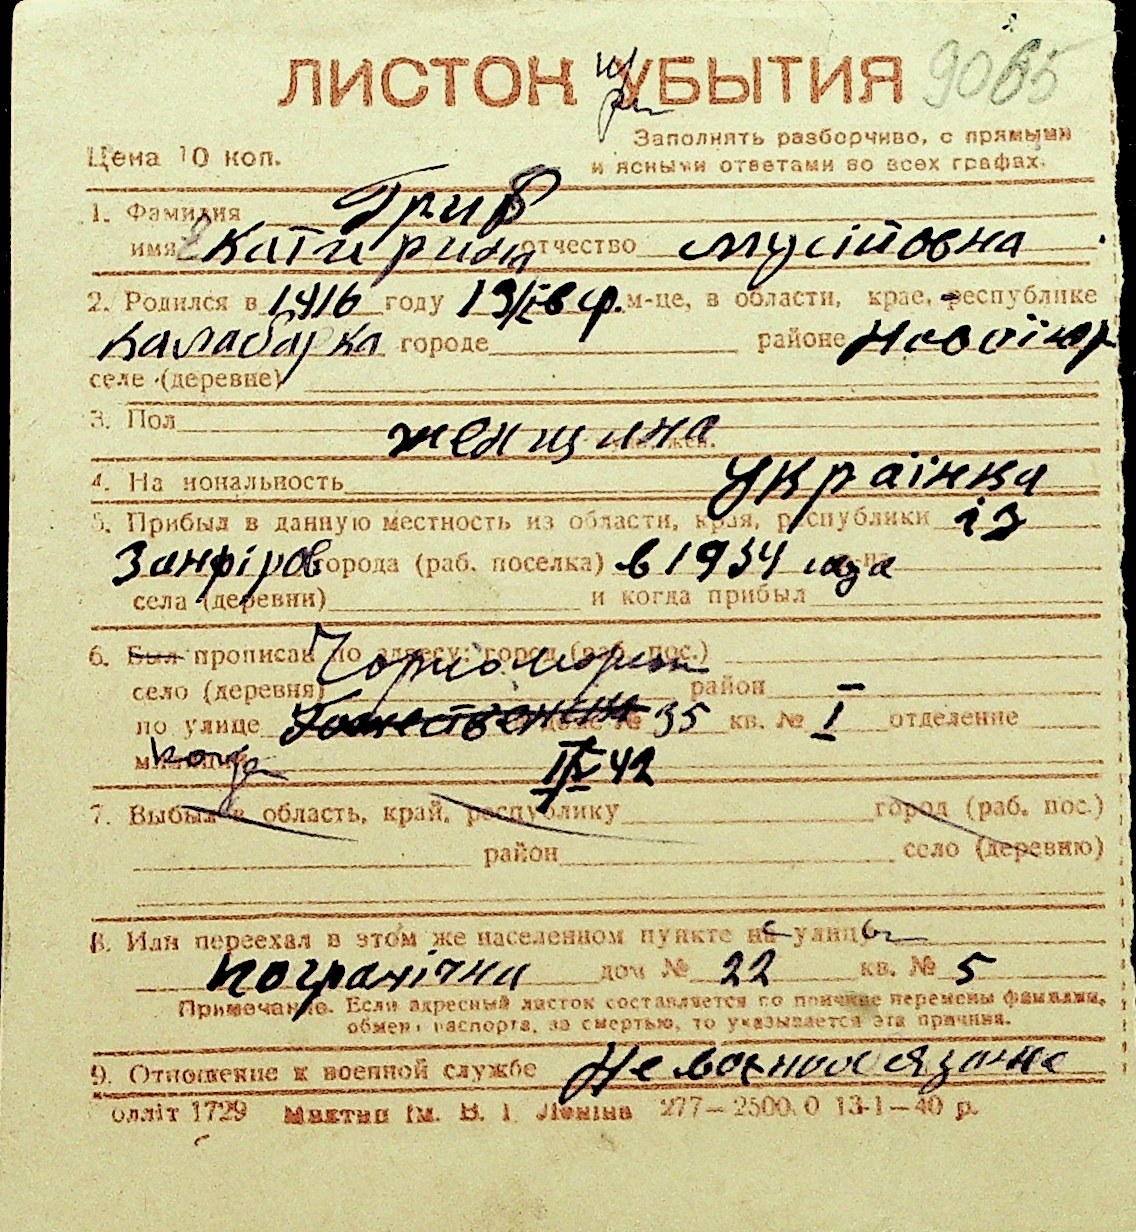 ЛИСТОК УБЫТИЯ 9065
Цена 10 коп.
Заполнять разборчиво, с прямыми
и ясными ответами во всех графах.
1. Фамилия Гриб
имя Катирина отчество Мусійовна
2. Родился в 1916 году 19/ м-це, в области, крае, республике
Калабарка городе районе
селе (деревне)
3. Пол женщина
4. Национальность українка
5. Прибыл в данную местность из области, края, республики із
Занфіров города (раб. поселка) в 1934 года
села (деревни) и когда прибыл
6. Был прописан по адресу: город (раб. пос.)
село (деревня) район –
по улице № 35 кв. № I отделение
когда IX 42
7. Выбыл в область, край, республику город (раб. пос.)
район село (деревню)
8. Или переехал в этом же населенном пункте с улицы
погранична дом № 22 кв. № 5
Примечание. Если адресный листок составляется по причине перемены фамилии,
обмена паспорта, за смертью, то указывается эта причина.
9. Отношение к военной службе Не военнообязана
олліт 1729 ім. В. І. Леніна 277—2500.0 13-1—40 р.